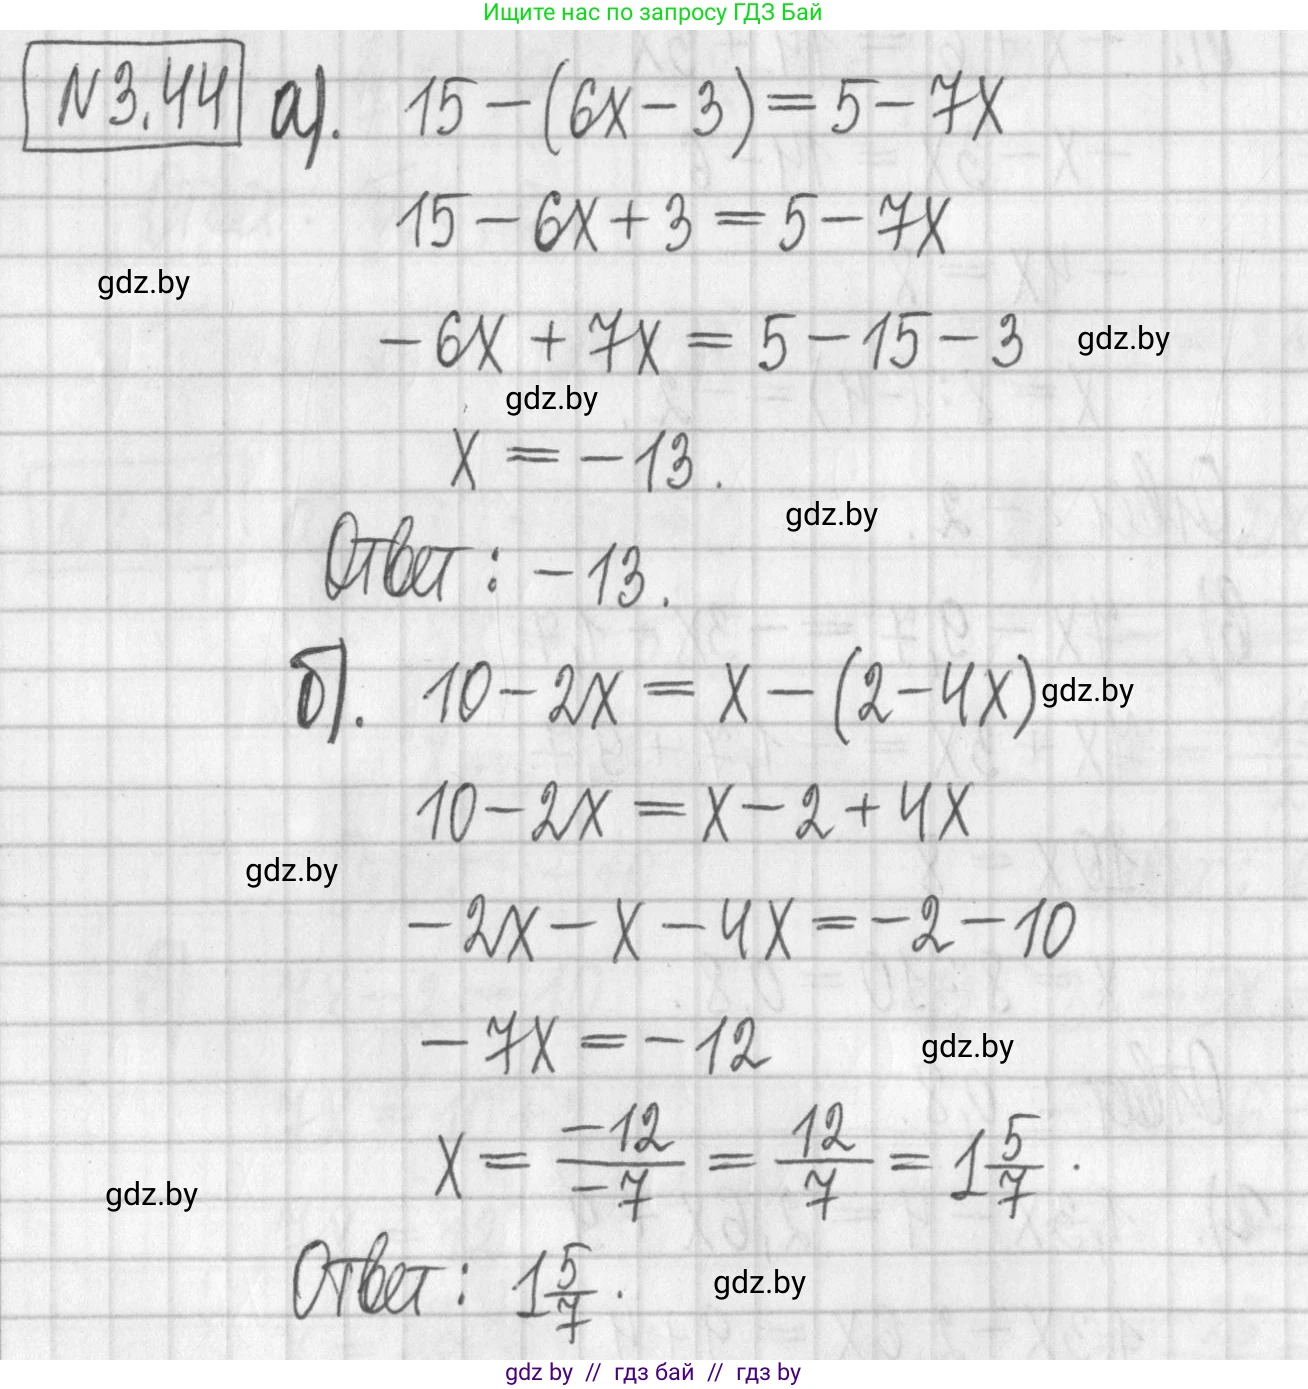 Ищите нас по запросу ГДЗ Бай
N 3.44 а). 15 - (6x - 3) = 5 - 7x
15 - 6x + 3 = 5 - 7x
gdz.by
- 6x + 7x = 5 - 15 - 3 gdz.by
gdz.by
x = - 13.
gdz.by
Ответ: - 13.
б). 10 - 2x = x - (2 - 4x) gdz.by
10 - 2x = x - 2 + 4x
gdz.by
- 2x - x - 4x = - 2 - 10
- 7x = - 12 gdz.by
x = -12/-7 = 12/7 = 1 5/7.
gdz.by
Ответ: 1 5/7. gdz.by
gdz by // гдз бай // гдз by